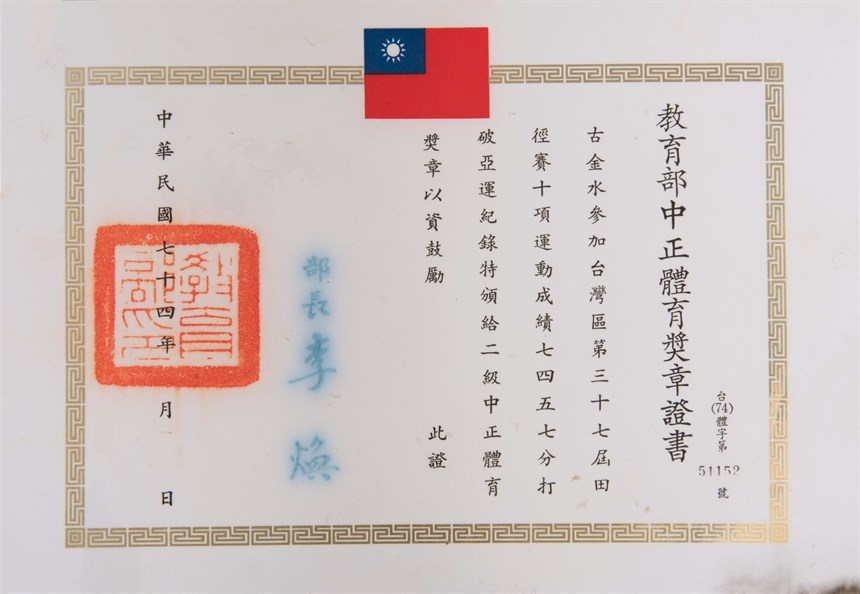 教育部中正體育獎章證書
台(74)體字第51152號
古金水參加台灣區第三十七屆田
徑賽十項運動成績七四五七分打
破亞運紀錄特頒給二級中正體育
獎章以資鼓勵 此證
部長李煥
中華民國七十四年 月 日
教育部印